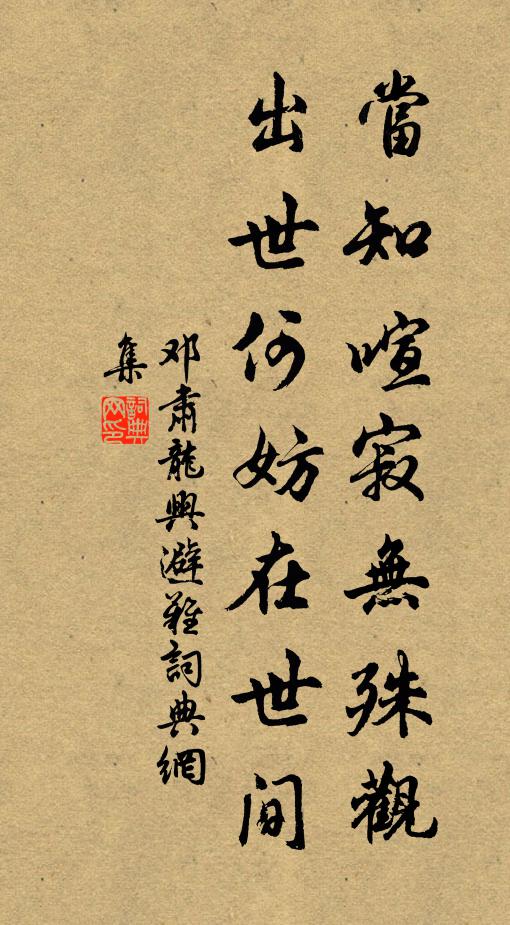 當知喧寂無殊觀
出世何妨在世間
邓肅龍興避難詞典網
集
詞典網印